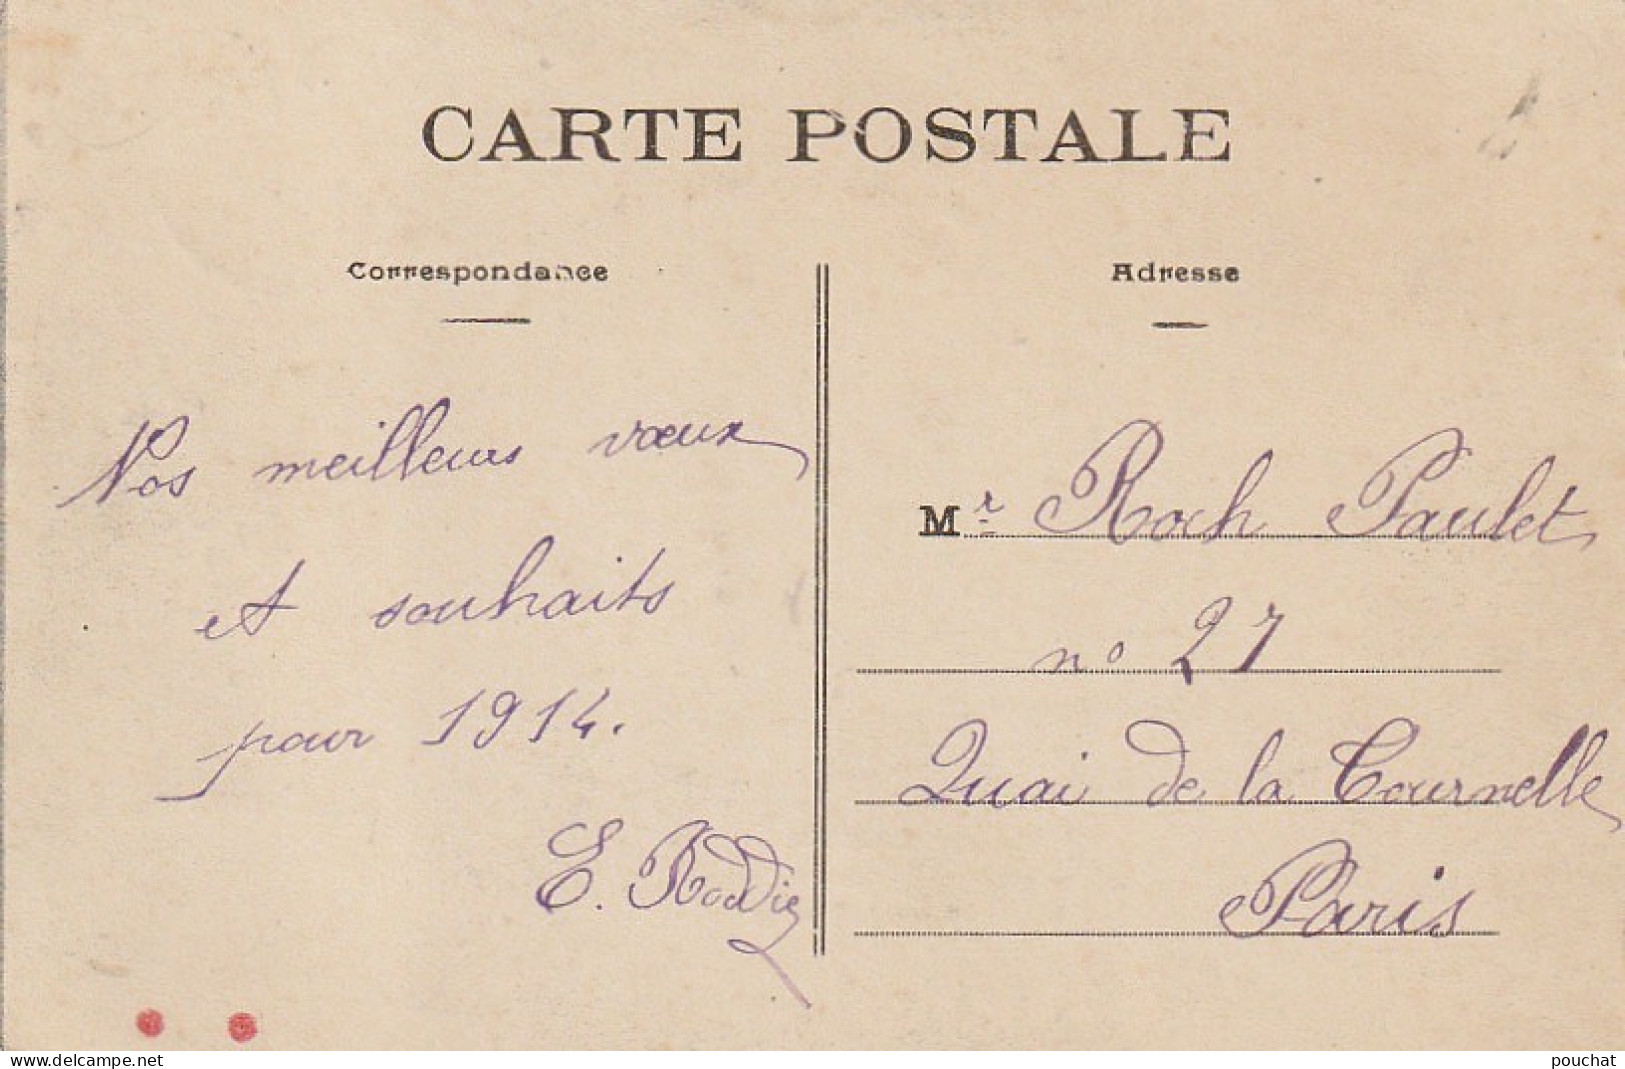 CARTE POSTALE
Correspondance
Nos meilleurs vœux
et souhaits
pour 1914.
E. Roddier
Adresse
Mr Roch Paulet
n° 27
Quai de la Tournelle
Paris
www.delcampe.net
pouchat